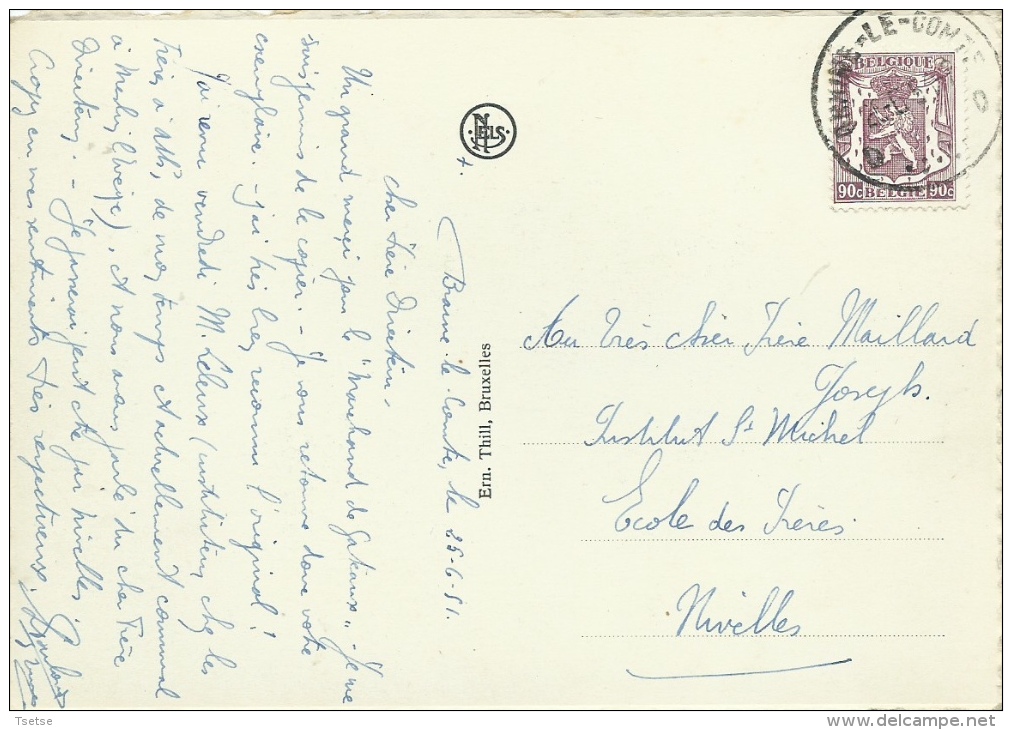 +.
Braine-le-Comte, le 25-6-51.
Cher Frère Directeur,
Un grand merci pour le "Marchand de Gateaux". Je me
suis permis de le copier. - Je vous retourne donc votre
exemplaire. - J'ai très bien reconnu l'original!
J'ai revu vendredi M. Leleux (instituteur chez les
Frères à Ath, de mon temps et actuellement communal
à Meslin l'Evêque), et nous avons parlé du cher Frère
Directeur. - Je passerai peut-être par Nivelles
Croyez en mes sentiments très respectueux.
NELS
Ern. Thill, Bruxelles
BRAINE-LE-COMTE
BELGIQUE
90c BELGIE 90c
Au Très Cher Frère Maillard
Joseph.
Institut St Michel
Ecole des Frères
Nivelles
Tsetse
delcampe.net